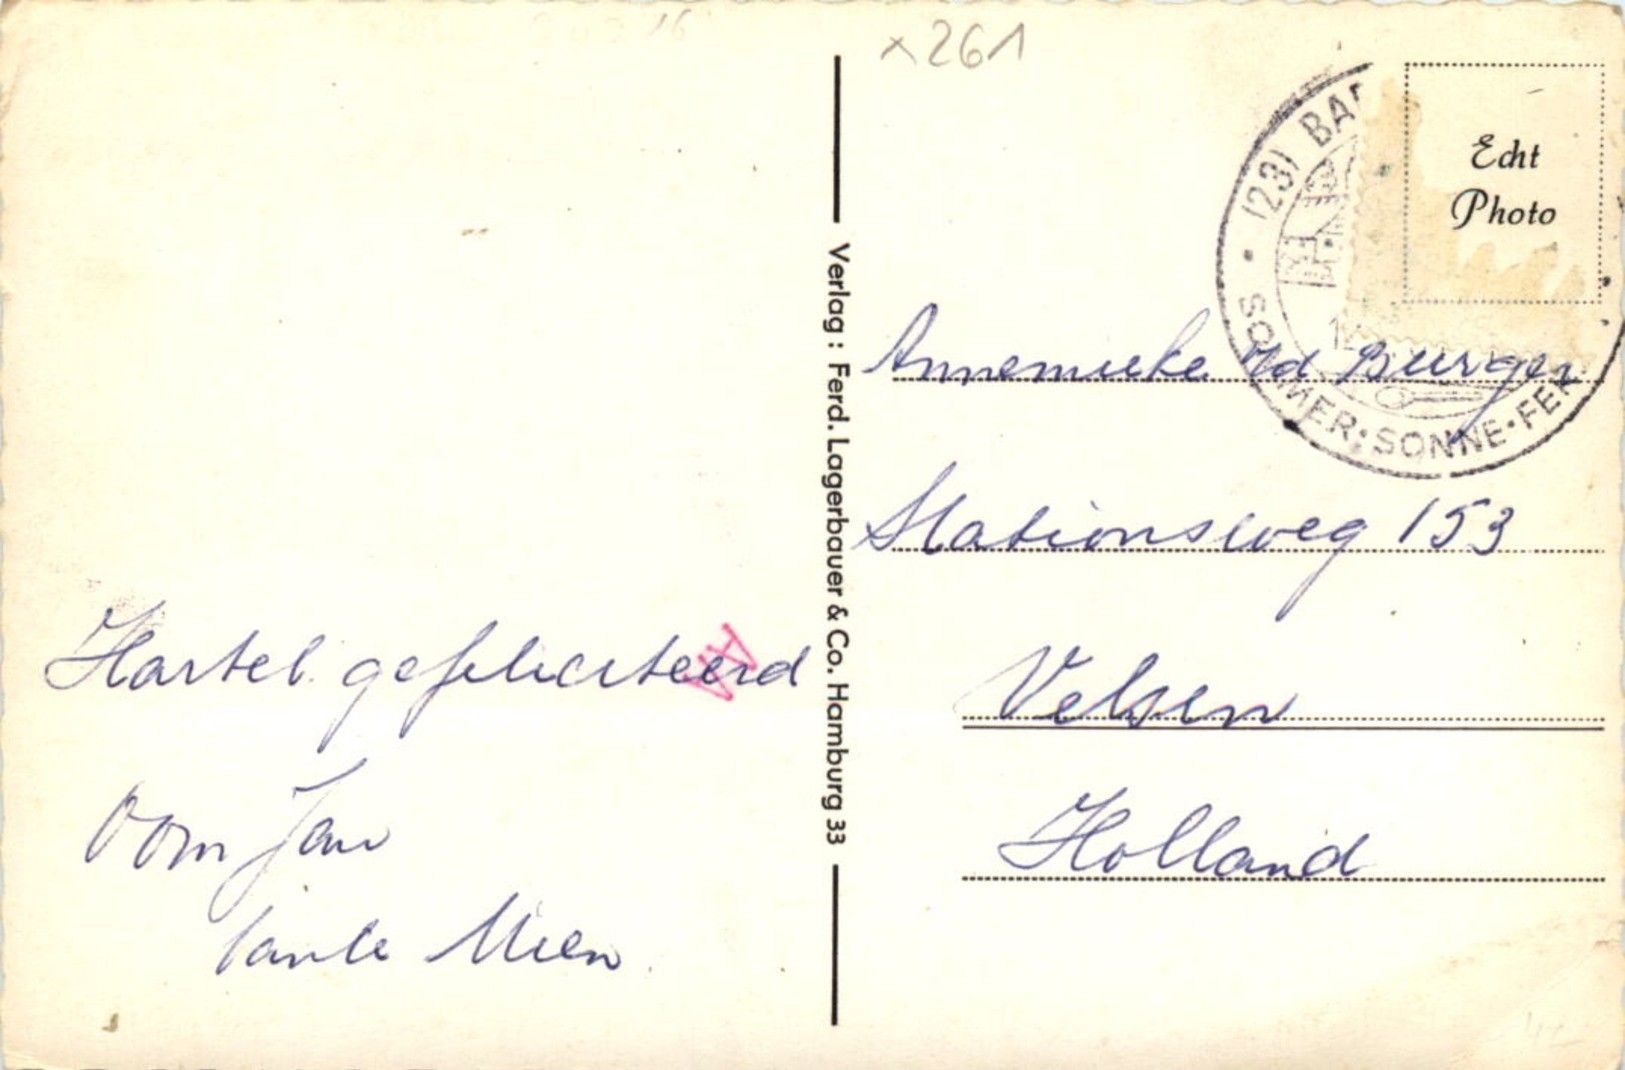 x261
(23) BAD
SOMMER·SONNE·FER
Echt
Photo
Hartel. gefeliciteerd
Oom Jan
tante Mien.
Verlag : Ferd. Lagerbauer & Co. Hamburg 33
Annemieke vd Burger
Stationsweg 153
Velsen
Holland